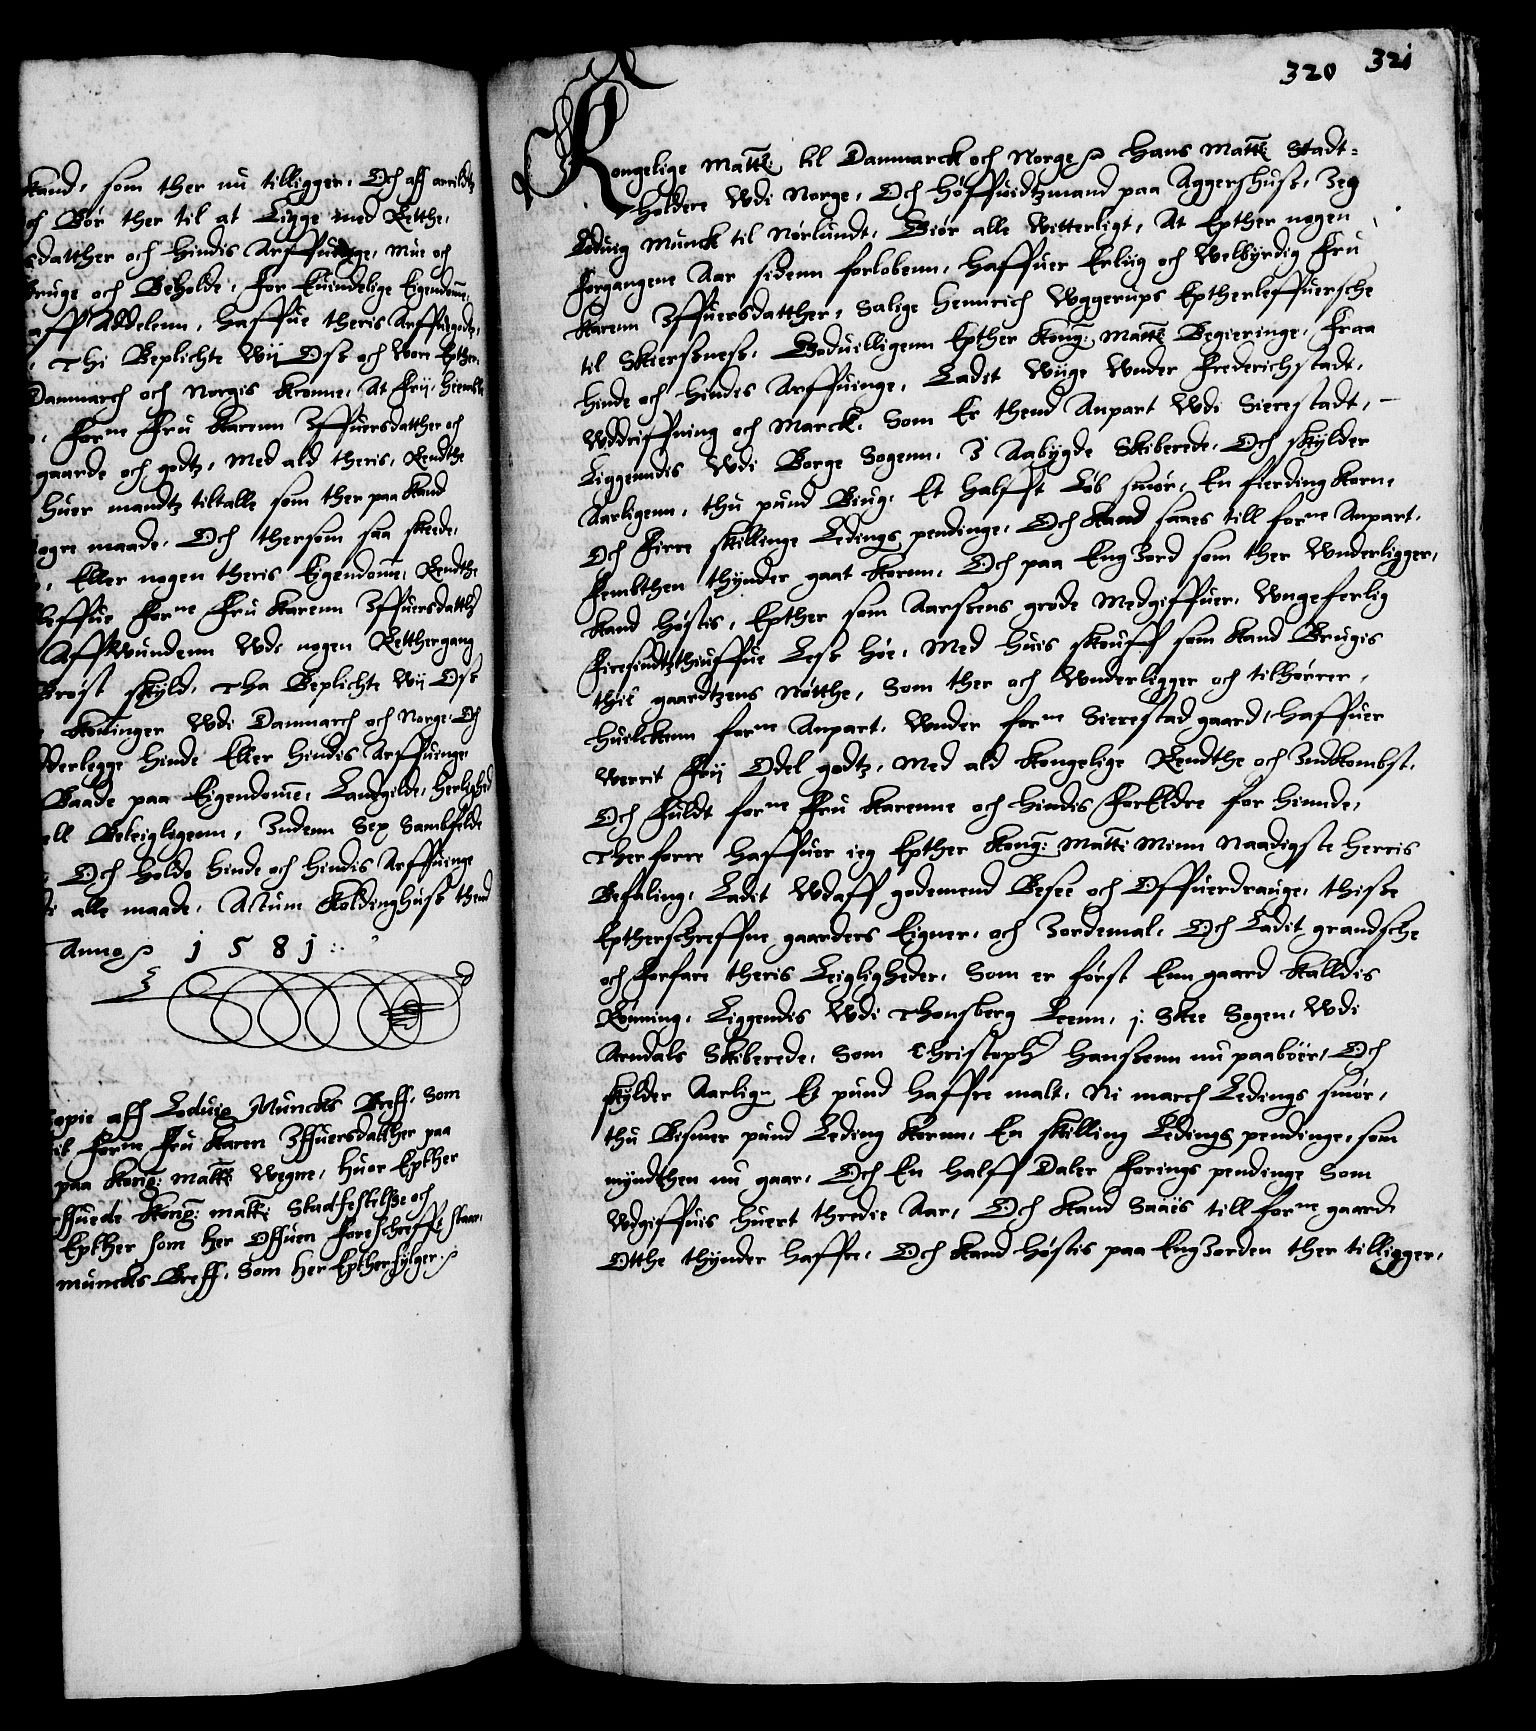 kand, som ther nu tilligger, Och aff arrildtz
och Bör ther til at Ligge med Retthe,
sdatther och hindis Arffuinge, Mue och
bruge och Beholde, for Euindelige Eigendomme
aff Addelenn, haffue theris Arffuegodtz,
Thi Beplichte Wij Osz och Wore Epther
Danmarch och Norgis Kronne, At Frij, hiemble
, Forne Fru Karenn Iffuersdatther och
gaarde och godtz, Med ald theris, Rendthe
huer mandtz tiltalle som ther paa kand
nogre maade, Och thersom saa skeede,
, Eller nogen theris Eigendome, Rendthe
bleffue Forne Fru Karenn Iffuersdatther
Affwundenn Wdi nogen Retthergang
Bröst skyld, Tha Beplichte Wij Osz
Koninger Wdi Danmarch och Norge, Och
Vderlegge hinde Eller hindis Arffuinge
Baade paa Eigendome, Landgilde, herlighed
ell Beleigligenn, Indenn Sex Sambfelde
Och holde hinde och hindis Arffuinge
alle maade, Actum Koldinghusz thend
Anno 1581
Copie aff Loduig Muncks Breff, Som
Forne Fru Karen Iffuersdatther paa
paa Kong: Matts Wegne, huor Epther
Kong: Matts Stadfestelsze och
Epther som her Offuen Foreschreffne staar,
Muncks Breff, Som her Epther fylger
320 321
Kongelige Matts: til Danmarck och Norge, Hans Matts Stadt-
holdere Wdi Norge, Och Höffuidtzmand paa Aggershusz, Ieg
Loduig Munck til Nörlundt, Giör alle Witterligt, At Epther nogen
Forgangene Aar sidenn forlobenn, haffuer Erlüg och Welbÿrdig Fru
Karenn Iffuersdatther, Salige Hennrich Wggerups Eptherleffuersche
til Skiersenesz, Goduilligenn Epther Kong: Matts Begieringe, Fraa
hinde och hindis Arffuinge, Ladit Wijge Wnder Frederichstadt,
Wddriffning och Marck, Som Er thend Anpart Wdi Sierestadt,
Liggenndis Wdi Borge Sogenn, I Aabygde Skiberede, Och skylder
Aarligenn, thu pund Biug, Et halfft Löb smör, En fierding Korn,
Och Firre skillinge Ledings pendinge, Och kand saaes till forne Anpart,
Femthen thÿnder gaat Kornn, Och paa Eng Iord som ther Wnderligger,
kand höstis, Epther som Aarszens grode Medgiffuer, Wngeferlig
Firesindtztiuffue Lesz höe, Med huis skouff som kand Brugis
thil gaardtzens nötthe, Som ther och Wnderligger och tilhörrer,
huilckenn forne Anpart, Wnder forne Sierestad gaard, haffuer
Werrit Frij Odel godtz, Med ald Kongelige Rendthe och Indkombst,
Och fuldt forne Fru Karenne och hindis Forelldre for hinnde,
Therforre haffuer ieg Epther Kong: Matts Minn Naadigste herris
Befaling, Ladit Wdaff godemend Besee och Offuerdrauge, thisse
Epterschreffne gaarders Eigner, och Iordemal, Och Ladit grandsche
och Forfare theris Leiligheder, Som er först Enn gaard kalldis
Rönning, Liggendis Wdi Thonsberg Leenn, j: Skee Sogen, Wdi
Arndals Skiberede, Som Christopher Hanszenn nu paaböer, Och
skÿlder Aarlige Et pund haffre malt, Ni march Ledings smör,
thu Bismer pund Leding Kornn, En skilling Ledings pendinge, som
mÿndthen nu gaar, Och En halff Daler Forings pendinge Som
Wdgiffuis huert thredie Aar, Och kand Saaes till forne gaard
Otthe thÿnder haffre, Och kand höstis paa Eng Iorden ther tilligger,